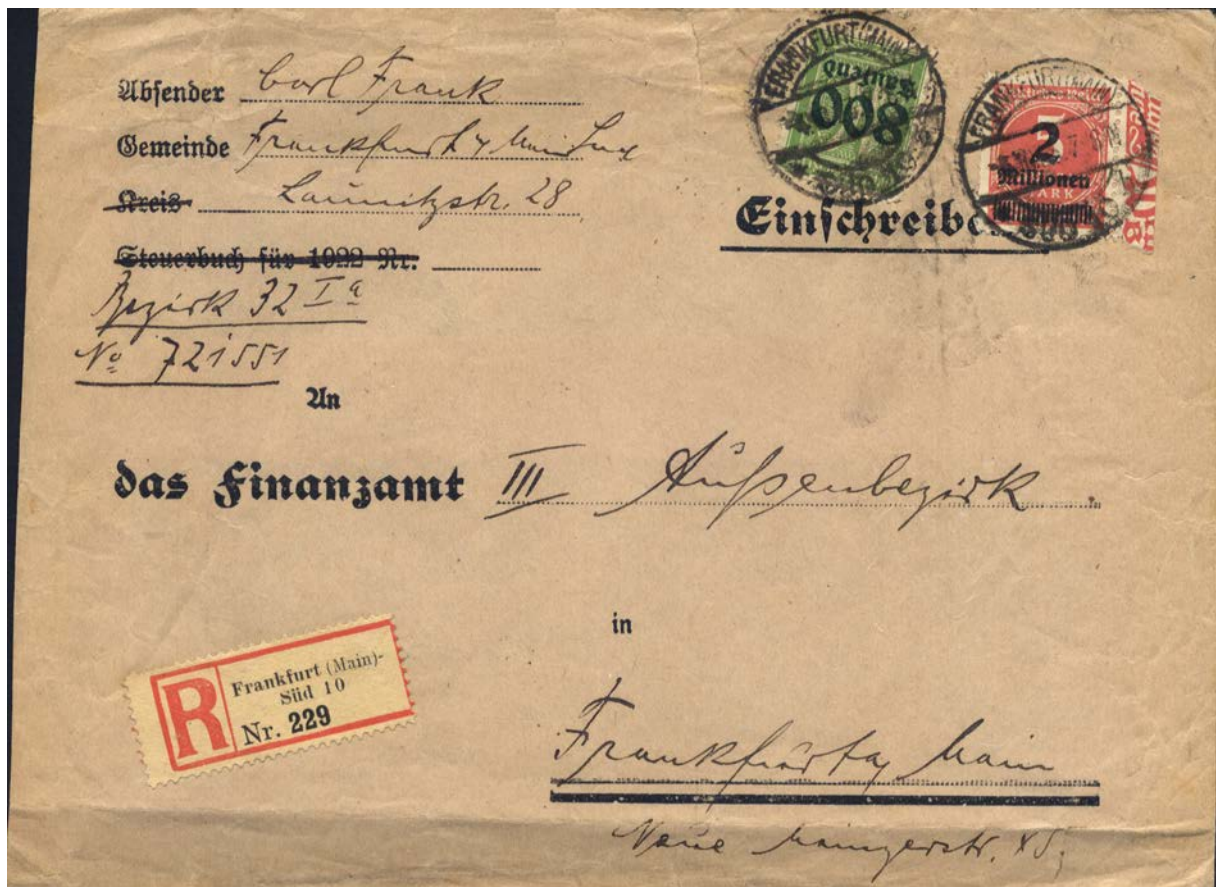 Absender Carl Frank
Gemeinde Frankfurt
Kreis Launitzstr. 28
Steuerbuch für 1922 Nr.
Bezirk 32 I a
No 721551
FRANKFURT (MAIN)
800
Tausend
FRANKFURT (MAIN)
5
2
Millionen
MARK
Einschreibe
An
das Finanzamt III Außenbezirk
in
R
Frankfurt (Main)-
Süd 10
Nr. 229
Frankfurt a/ Main
Neue Mainzerstr.